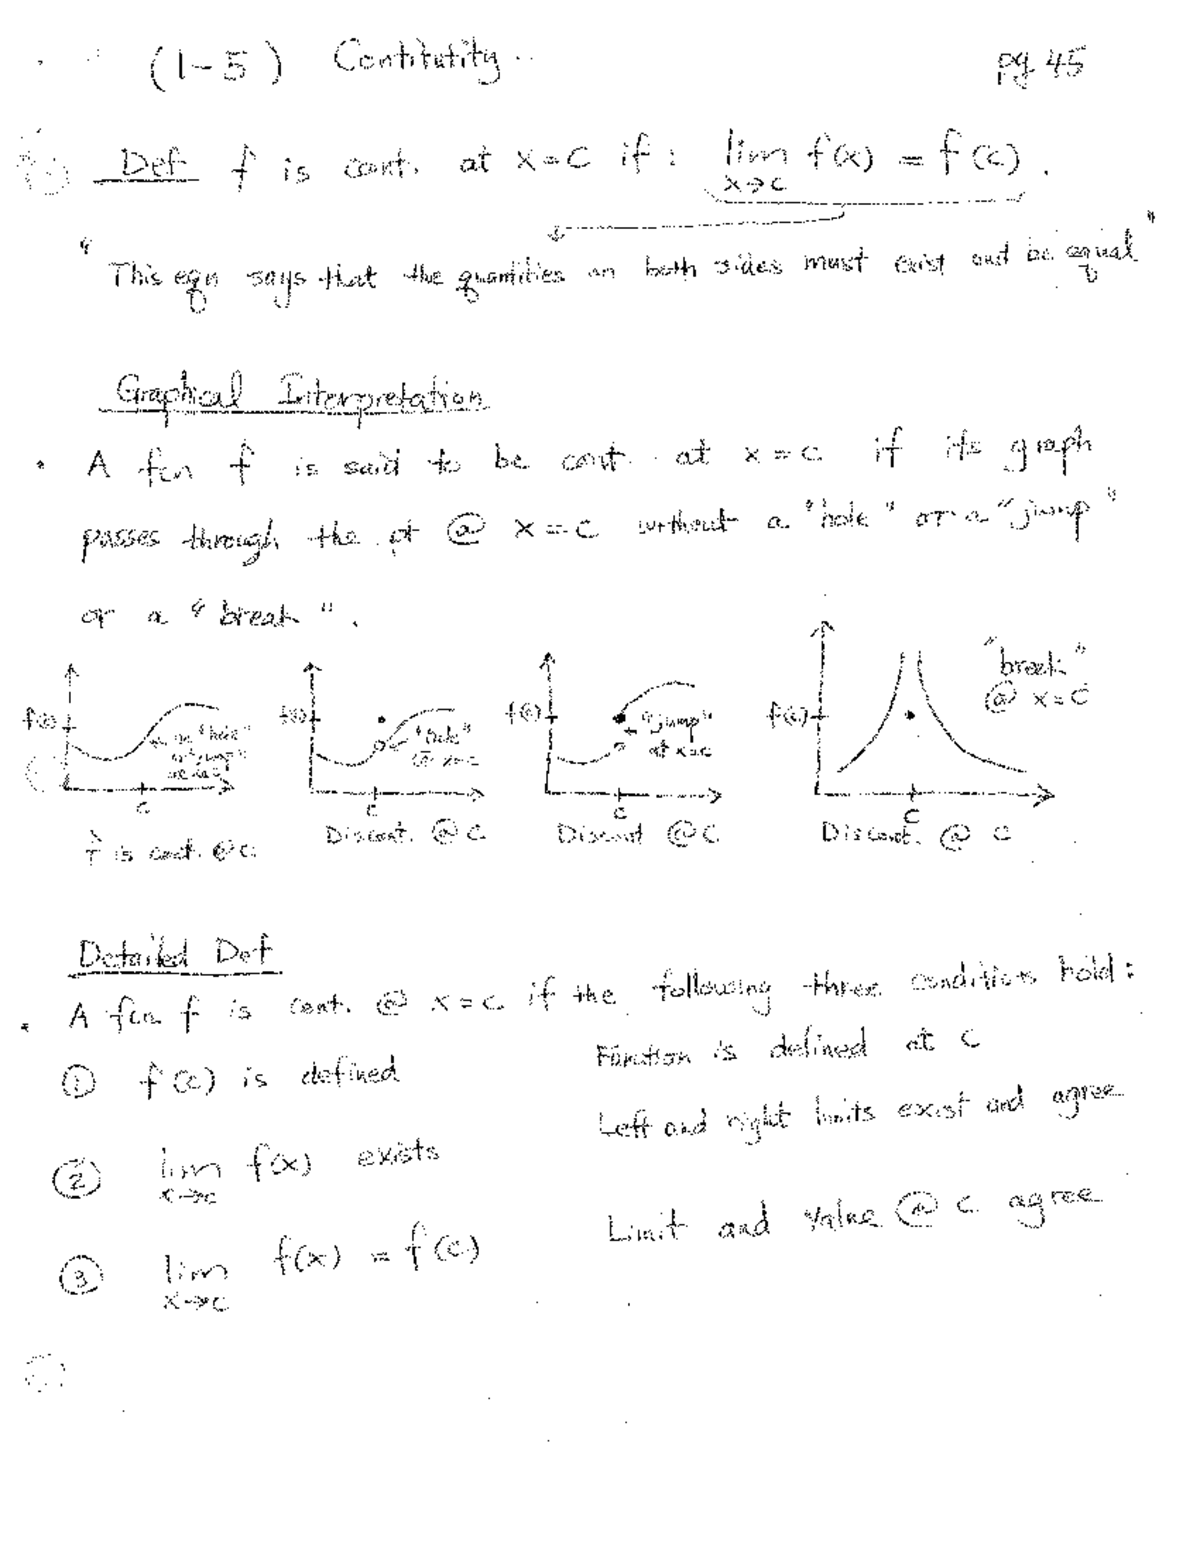 (1-5) Contitutity pg 45
Def f is cont. at x=c if: lim f(x) = f(c).
x→c
"This eqn says that the quantities on both sides must exist and be equal"
Graphical Interpretation
• A fcn f is said to be cont. at x=c if its graph
passes through the pt @ x=c without a "hole" or a "jump"
or a "break".
f(c) f(c) f(c) f(c) "break"
@ x=c
"hole" "hole" "jump"
at x=c
c c c c
f is cont. @ c Discont. @ c Discont @ c Discont. @ c
Detailed Def
• A fcn f is cont. @ x=c if the following three conditions hold:
① f(c) is defined Function is defined at c
② lim f(x) exists Left and right limits exist and agree
x→c
③ lim f(x) = f(c) Limit and value @ c agree
x→c